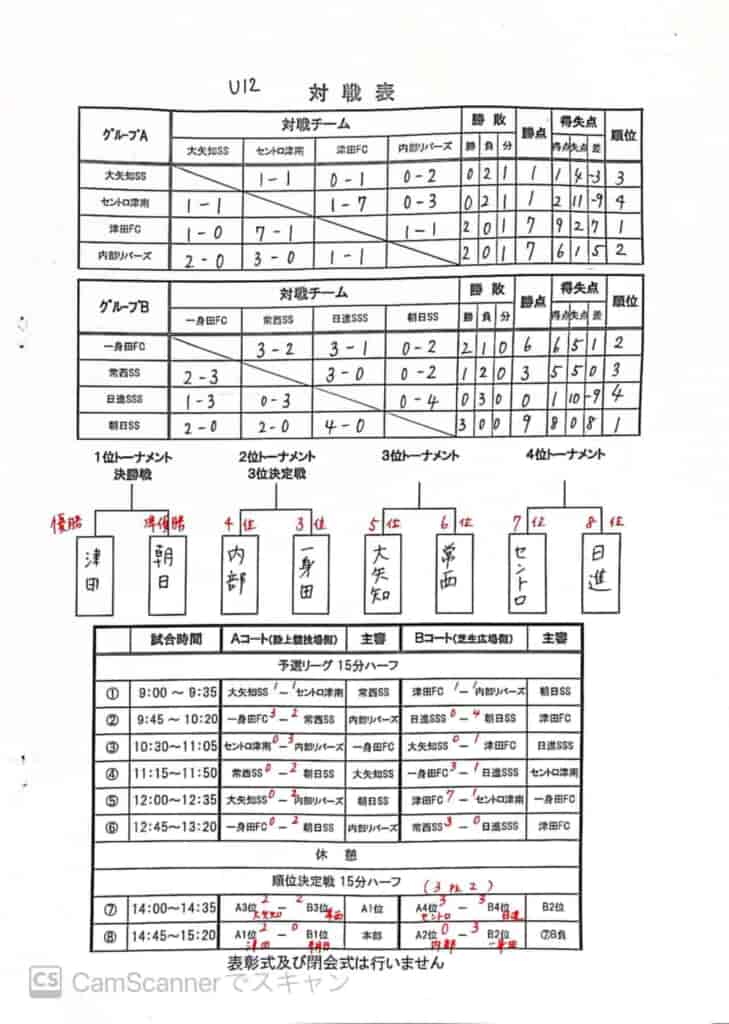 U12 対戦表
グループA 対戦チーム 勝敗 勝点 得失点 順位
大矢知SS セントロ津南 津田FC 内部リバーズ 勝 負 分 得点 失点 差
大矢知SS 1-1 0-1 0-2 0 2 1 1 1 4 -3 3
セントロ津南 1-1 1-7 0-3 0 2 1 1 2 11 -9 4
津田FC 1-0 7-1 1-1 2 0 1 7 9 2 7 1
内部リバーズ 2-0 3-0 1-1 2 0 1 7 6 1 5 2
グループB 対戦チーム 勝敗 勝点 得失点 順位
一身田FC 常西SS 日進SSS 朝日SS 勝 負 分 得点 失点 差
一身田FC 3-2 3-1 0-2 2 1 0 6 6 5 1 2
常西SS 2-3 3-0 0-2 1 2 0 3 5 5 0 3
日進SSS 1-3 0-3 0-4 0 3 0 0 1 10 -9 4
朝日SS 2-0 2-0 4-0 3 0 0 9 8 0 8 1
1位トーナメント 2位トーナメント 3位トーナメント 4位トーナメント
決勝戦 3位決定戦
優勝 準優勝 4位 3位 5位 6位 7位 8位
津田 朝日 内部 一身田 大矢知 常西 セントロ 日進
試合時間 Aコート(陸上競技場側) 主審 Bコート(芝生広場側) 主審
予選リーグ 15分ハーフ
① 9:00～9:35 大矢知SS 1-1 セントロ津南 常西SS 津田FC 1-1 内部リバーズ 朝日SS
② 9:45～10:20 一身田FC 3-2 常西SS 内部リバーズ 日進SSS 0-4 朝日SS 津田FC
③ 10:30～11:05 セントロ津南 0-3 内部リバーズ 一身田FC 大矢知SS 0-1 津田FC 日進SSS
④ 11:15～11:50 常西SS 0-2 朝日SS 大矢知SS 一身田FC 3-1 日進SSS セントロ津南
⑤ 12:00～12:35 大矢知SS 0-2 内部リバーズ 朝日SS 津田FC 7-1 セントロ津南 一身田FC
⑥ 12:45～13:20 一身田FC 0-2 朝日SS 内部リバーズ 常西SS 3-0 日進SSS 津田FC
休憩
順位決定戦 15分ハーフ (3 PK 2)
⑦ 14:00～14:35 A3位 2-2 B3位 A1位 A4位 3-3 B4位 B2位
大矢知 常西 セントロ 日進
⑧ 14:45～15:20 A1位 2-0 B1位 本部 A2位 0-3 B2位 ⑦B負
津田 朝日 内部 一身田
表彰式及び閉会式は行いません
CS CamScannerでスキャン